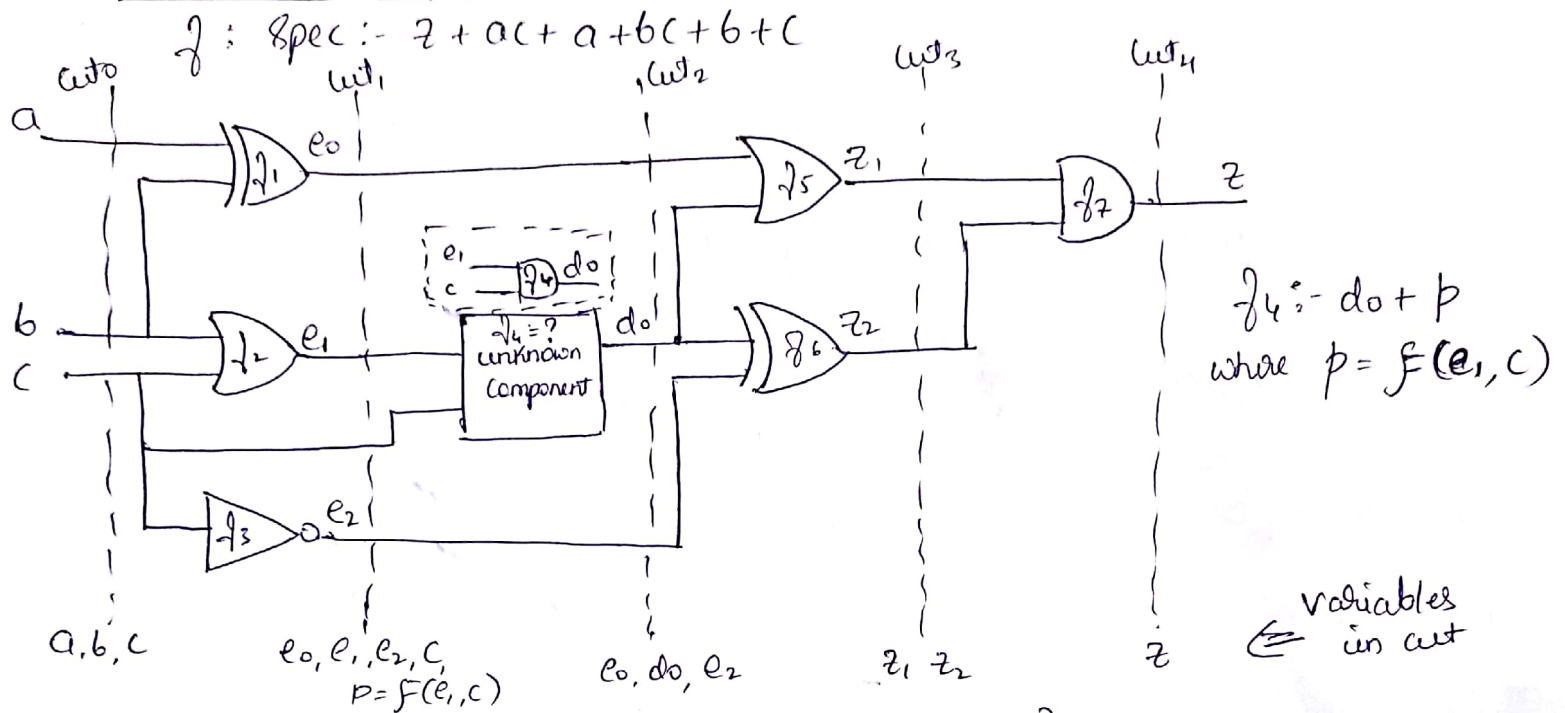 f : Spec :- z + ac + a + bc + b + c
cut0 cut1 cut2 cut3 cut4
a
f1
e0
f5
z1
f7
z
e1
c
f4
d0
b
c
f2
e1
f4 = ?
unknown
component
d0
f6
z2
f4 :- d0 + p
where p = F(e1, c)
f3
e2
a, b, c
e0, e1, e2, c,
p = F(e1, c)
e0, d0, e2
z1 z2
z
⇐ variables
in cut